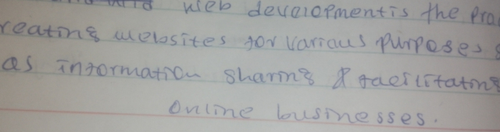 web developmentis the pro
reating websites for various purposes
as information sharing & facilitating
online businesses.